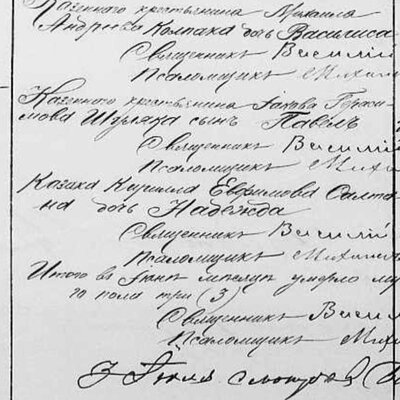 Казеннаго крестьянина Михаила
Андреева Колпака дочь Василиса
Священникъ Василій
Псаломщикъ
Казеннаго крестьянина Іакова Гераси-
мова Шуляка сынъ Павелъ
Священникъ Василій
Псаломщикъ
Козака Кирилла Евфимова Салта-
на дочь Надежда
Священникъ Василій
Псаломщикъ
Итого въ Іюнѣ мѣсяцѣ умерло му
го пола три (3)
Священникъ Васил
Псаломщикъ